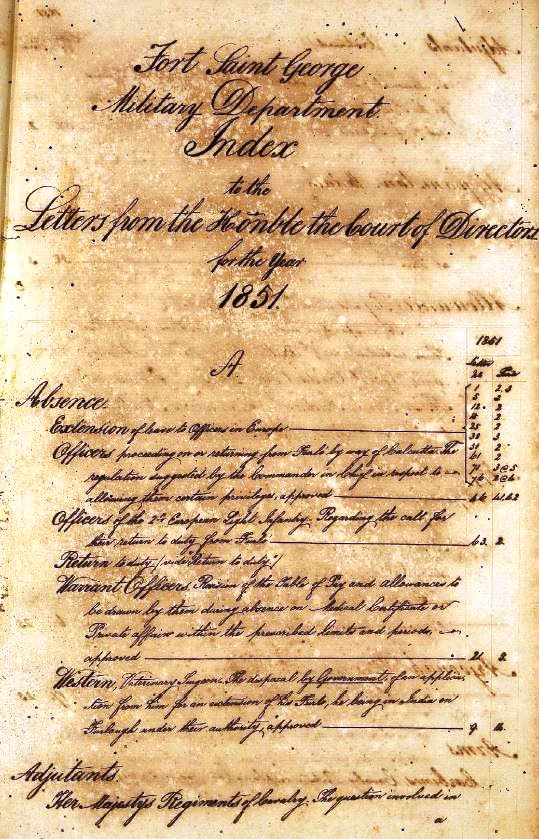 Fort Saint George
Military Department
Index
to the
Letters from the Honble the Court of Directors
for the Year
1851.
A
1851
Letter Para
Absence.
Extension of leave to Officers in Europe
1 2,3
5 3
12 2
2
25 2
38 3
51 2
61 2
71 3@5
76 2@6
Officers proceeding on or returning from Furlo' by way of Calcutta. The
regulation suggested by the Commander in Chief in respect to
allowing them certain privileges, approved
Officers of the 2d European Light Infantry. Regarding the call for
their return to duty from Furlo' 63. 2.
Return to duty (vide "Return to duty")
Warrant Officers Revision of the Table of Pay and Allowances to
be drawn by them during absence on Medical Certificate or
Private affairs within the prescribed limits and periods,
approved 21. 3.
Western, Veterinary Surgeon. The disposal by Government, of an applica-
tion from him for an extension of his Furlo, he being in India on
Furlough under their authority, approved 9. 4.
Adjutants.
Her Majestys Regiments of Cavalry. The question involved in
a